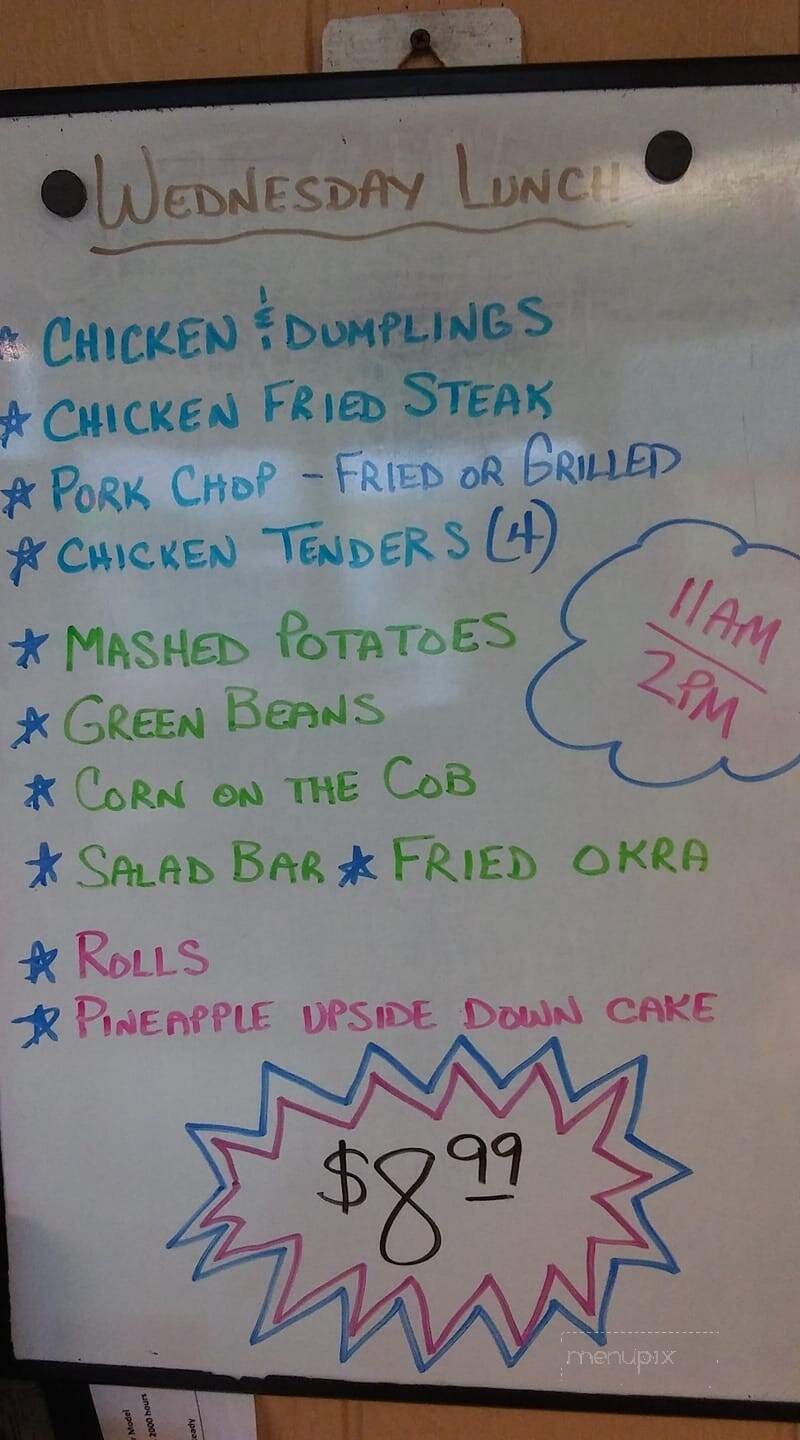 WEDNESDAY LUNCH
* CHICKEN & DUMPLINGS
* CHICKEN FRIED STEAK
* PORK CHOP - FRIED OR GRILLED
* CHICKEN TENDERS (4)
11AM
2PM
* MASHED POTATOES
* GREEN BEANS
* CORN ON THE COB
* SALAD BAR * FRIED OKRA
* ROLLS
* PINEAPPLE UPSIDE DOWN CAKE
$8.99
menupix
Model
2000 hours